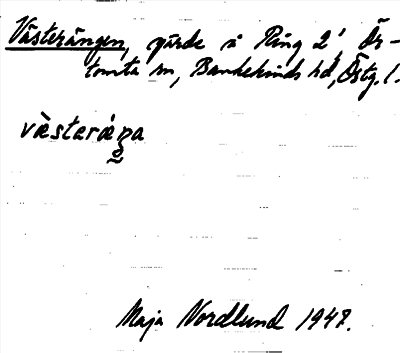 Västerängen, gärde å Ring 2¹, Ör-
tomta sn, Bankekinds hd, Östg. l.
væ̀starǽŋa
Maja Nordlund 1947.